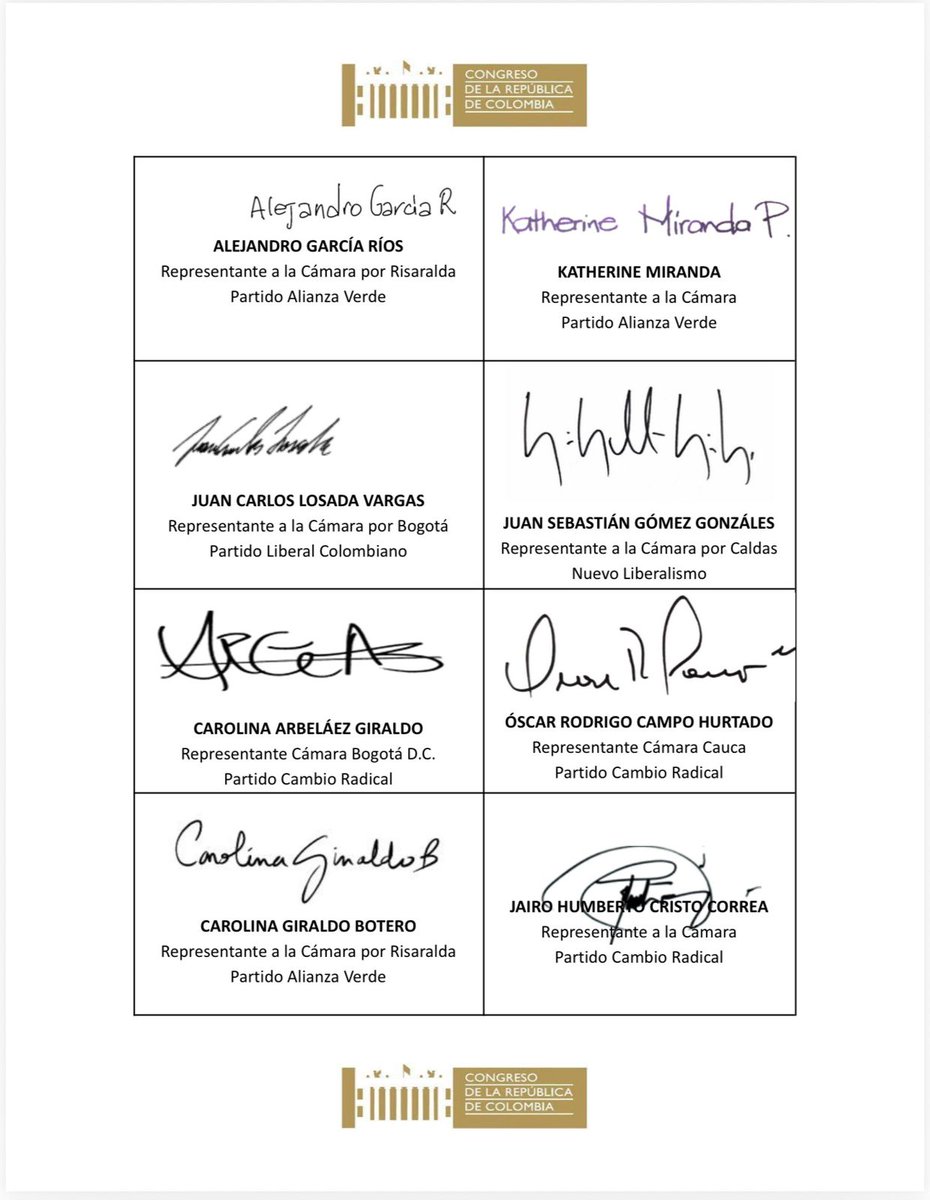 CONGRESO
DE LA REPÚBLICA
DE COLOMBIA
Alejandro García R
ALEJANDRO GARCÍA RÍOS
Representante a la Cámara por Risaralda
Partido Alianza Verde
Katherine Miranda P.
KATHERINE MIRANDA
Representante a la Cámara
Partido Alianza Verde
JUAN CARLOS LOSADA VARGAS
Representante a la Cámara por Bogotá
Partido Liberal Colombiano
JUAN SEBASTIÁN GÓMEZ GONZÁLES
Representante a la Cámara por Caldas
Nuevo Liberalismo
CAROLINA ARBELÁEZ GIRALDO
Representante Cámara Bogotá D.C.
Partido Cambio Radical
ÓSCAR RODRIGO CAMPO HURTADO
Representante Cámara Cauca
Partido Cambio Radical
Carolina Giraldo B
CAROLINA GIRALDO BOTERO
Representante a la Cámara por Risaralda
Partido Alianza Verde
JAIRO HUMBERTO CRISTO CORREA
Representante a la Cámara
Partido Cambio Radical
CONGRESO
DE LA REPÚBLICA
DE COLOMBIA